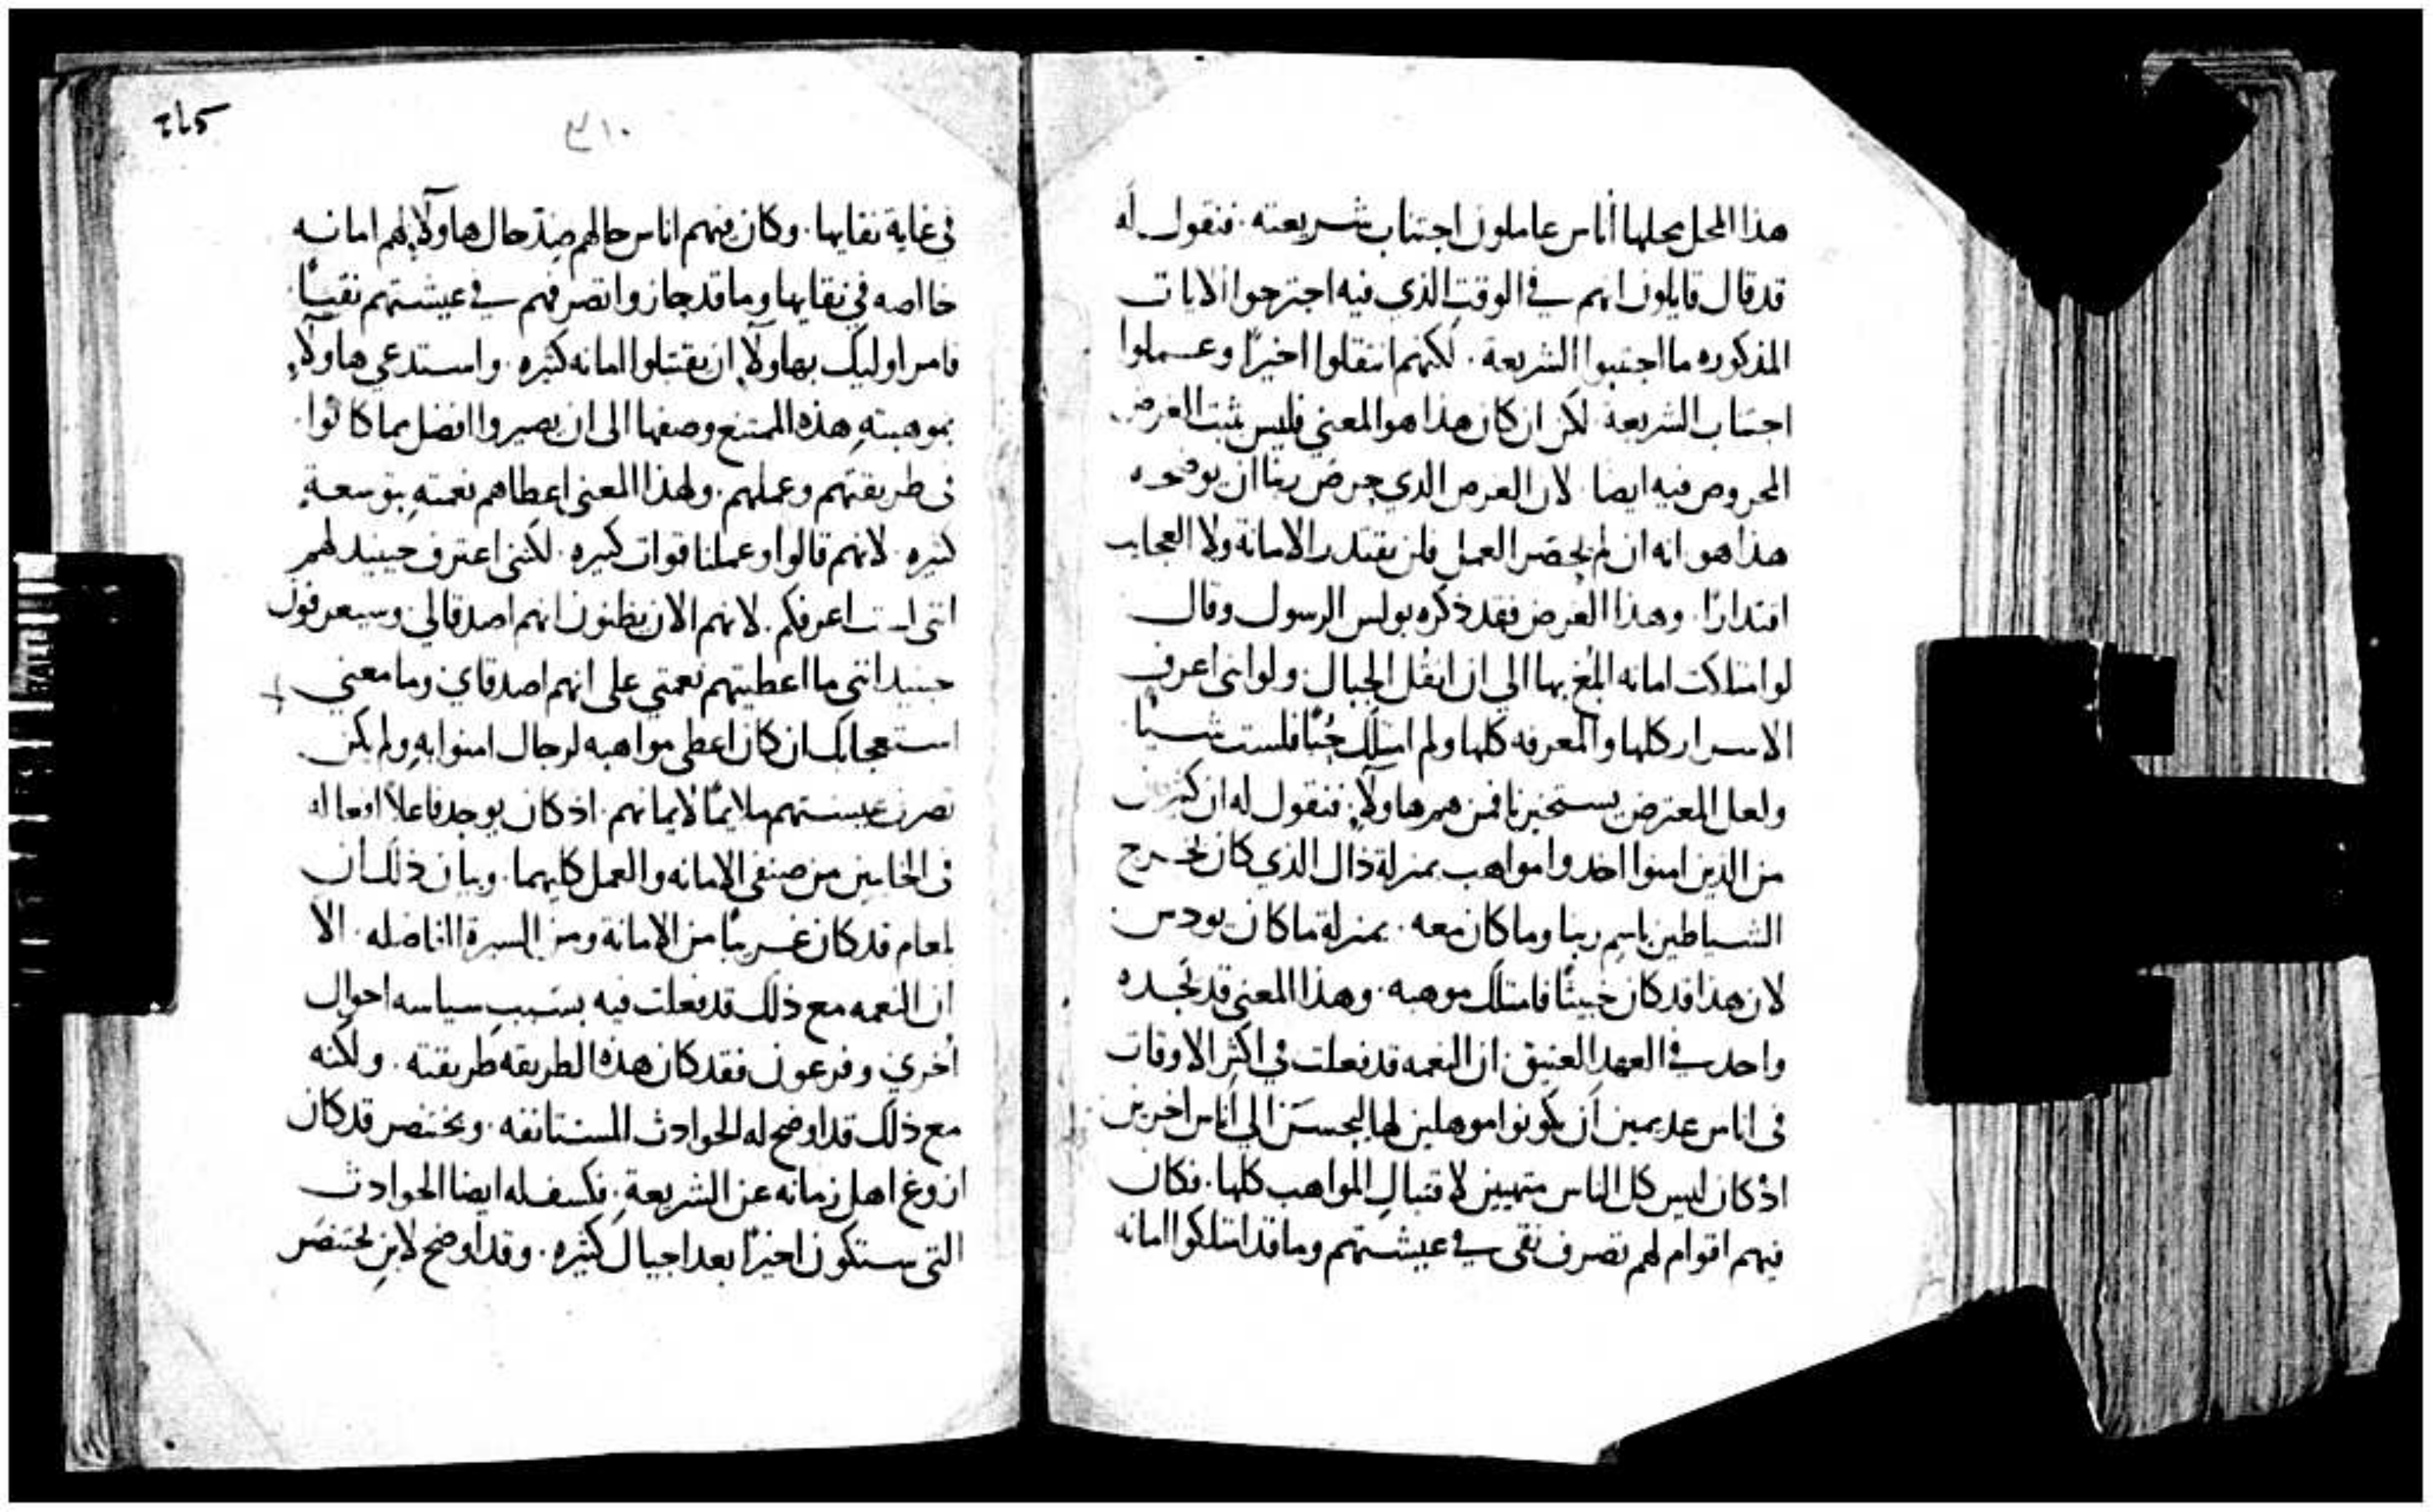 هذا المحل محلها أناس عاملون اجتناب شريعته · فنقول له
قد قال قايلون انهم في الوقت الذي فيه اجترحوا الايات
المذكوره ما اجتنبوا الشريعة · لكنهم انتقلوا اخيرًا وعملوا
اجتناب الشريعة · لكن ان كان هذا هو المعني فليس يثبت الغرض
المحروص فيه ايضا · لان الغرض الذي حرص ربنا ان يوضحه
هذا هو انه ان لم يحضر العمل فلن يقتدر الامانة ولا العجايب
اقتدارًا · وهذا الغرض فقد ذكره بولس الرسول وقال
لو امتلكت امانه ابلُغ بها الي ان انقُل الجبال ولو انني اعرف
الاسرار كلها والمعرفه كلها ولم امتلك حُبًا فلست شيًا
ولعل المعترض يستخبرنا فمن هم هاولآء فنقول له ان كثيرين
من الذين امنوا اخدوا مواهب بمنزلة ذاك الذي كان يخرج
الشياطين باسم ربنا وما كان معه · بمنزلة ما كان يودس
لان هذا قد كان خبيثًا فامتلك موهبه · وهذا المعني قد نجده
واحد في العهد العتيق ان النعمه قد فعلت في اكثر الاوقات
في اناس عديمين أن يكونوا موهلين لها ليحسَن الي أناس اخرين
اذ كان ليس كل الناس متهيين لاقتبال المواهب كلها · فكان
فيهم اقوام لهم تصرف نقي في عيشتهم وما قد امتلكوا امانه
٣١٠
في غاية نقايها · وكان فيهم اناس حالهم ضِدّ حال هاولآء لهم امانه
خالصه في نقايها وما قد حازوا تصرفهم في عيشتهم نقيًا ·
فامر اوليك بهاولآء ان يقتبلوا امانه كثيره · واستدعي هاولآء
بموهبتهِ هذه الممتنع وصفها الى ان يصيروا افضل مما كانوا ·
في طريقتهم وعملهم · ولهذا المعني اعطاهم نعمتهِ بتوسعةٍ
كثيره · لانهم قالوا وعملنا قوات كثيره · لكنني اعترف حينيد لهم
انني لست اعرفكم · لانهم الان يظنون انهم اصدقا لي وسيعرفون
حينيد انني ما اعطيتهم نعمتي على انهم اصدقاي وما معني
استعجابك ان كان اعطي مواهبه لرجال امنوا بهِ ولم يكن
تصرف عيشتهم ملايمًا لايمانهم · اذ كان يوجد فاعلاً افعاله
في الخايبين من صنفي الامانه والعمل كليهما · وبيان ذلك أن
بلعام قد كان غريبًا من الامانة ومن السيرة الفاضله · الا
ان النعمه مع ذلك قد فعلت فيه بسبب سياسه احوال
أخري وفرعون فقد كان هذه الطريقه طريقته · ولكنه
مع ذلك قد اوضح له الحوادث المستانفه · وبختنصر قد كان
ازوغ اهل زمانه عن الشريعةِ · فكشف له ايضا الحوادث
التي ستكون اخيرًا بعد اجيال كثيره · وقد أوضح لابنِ بختنصَر